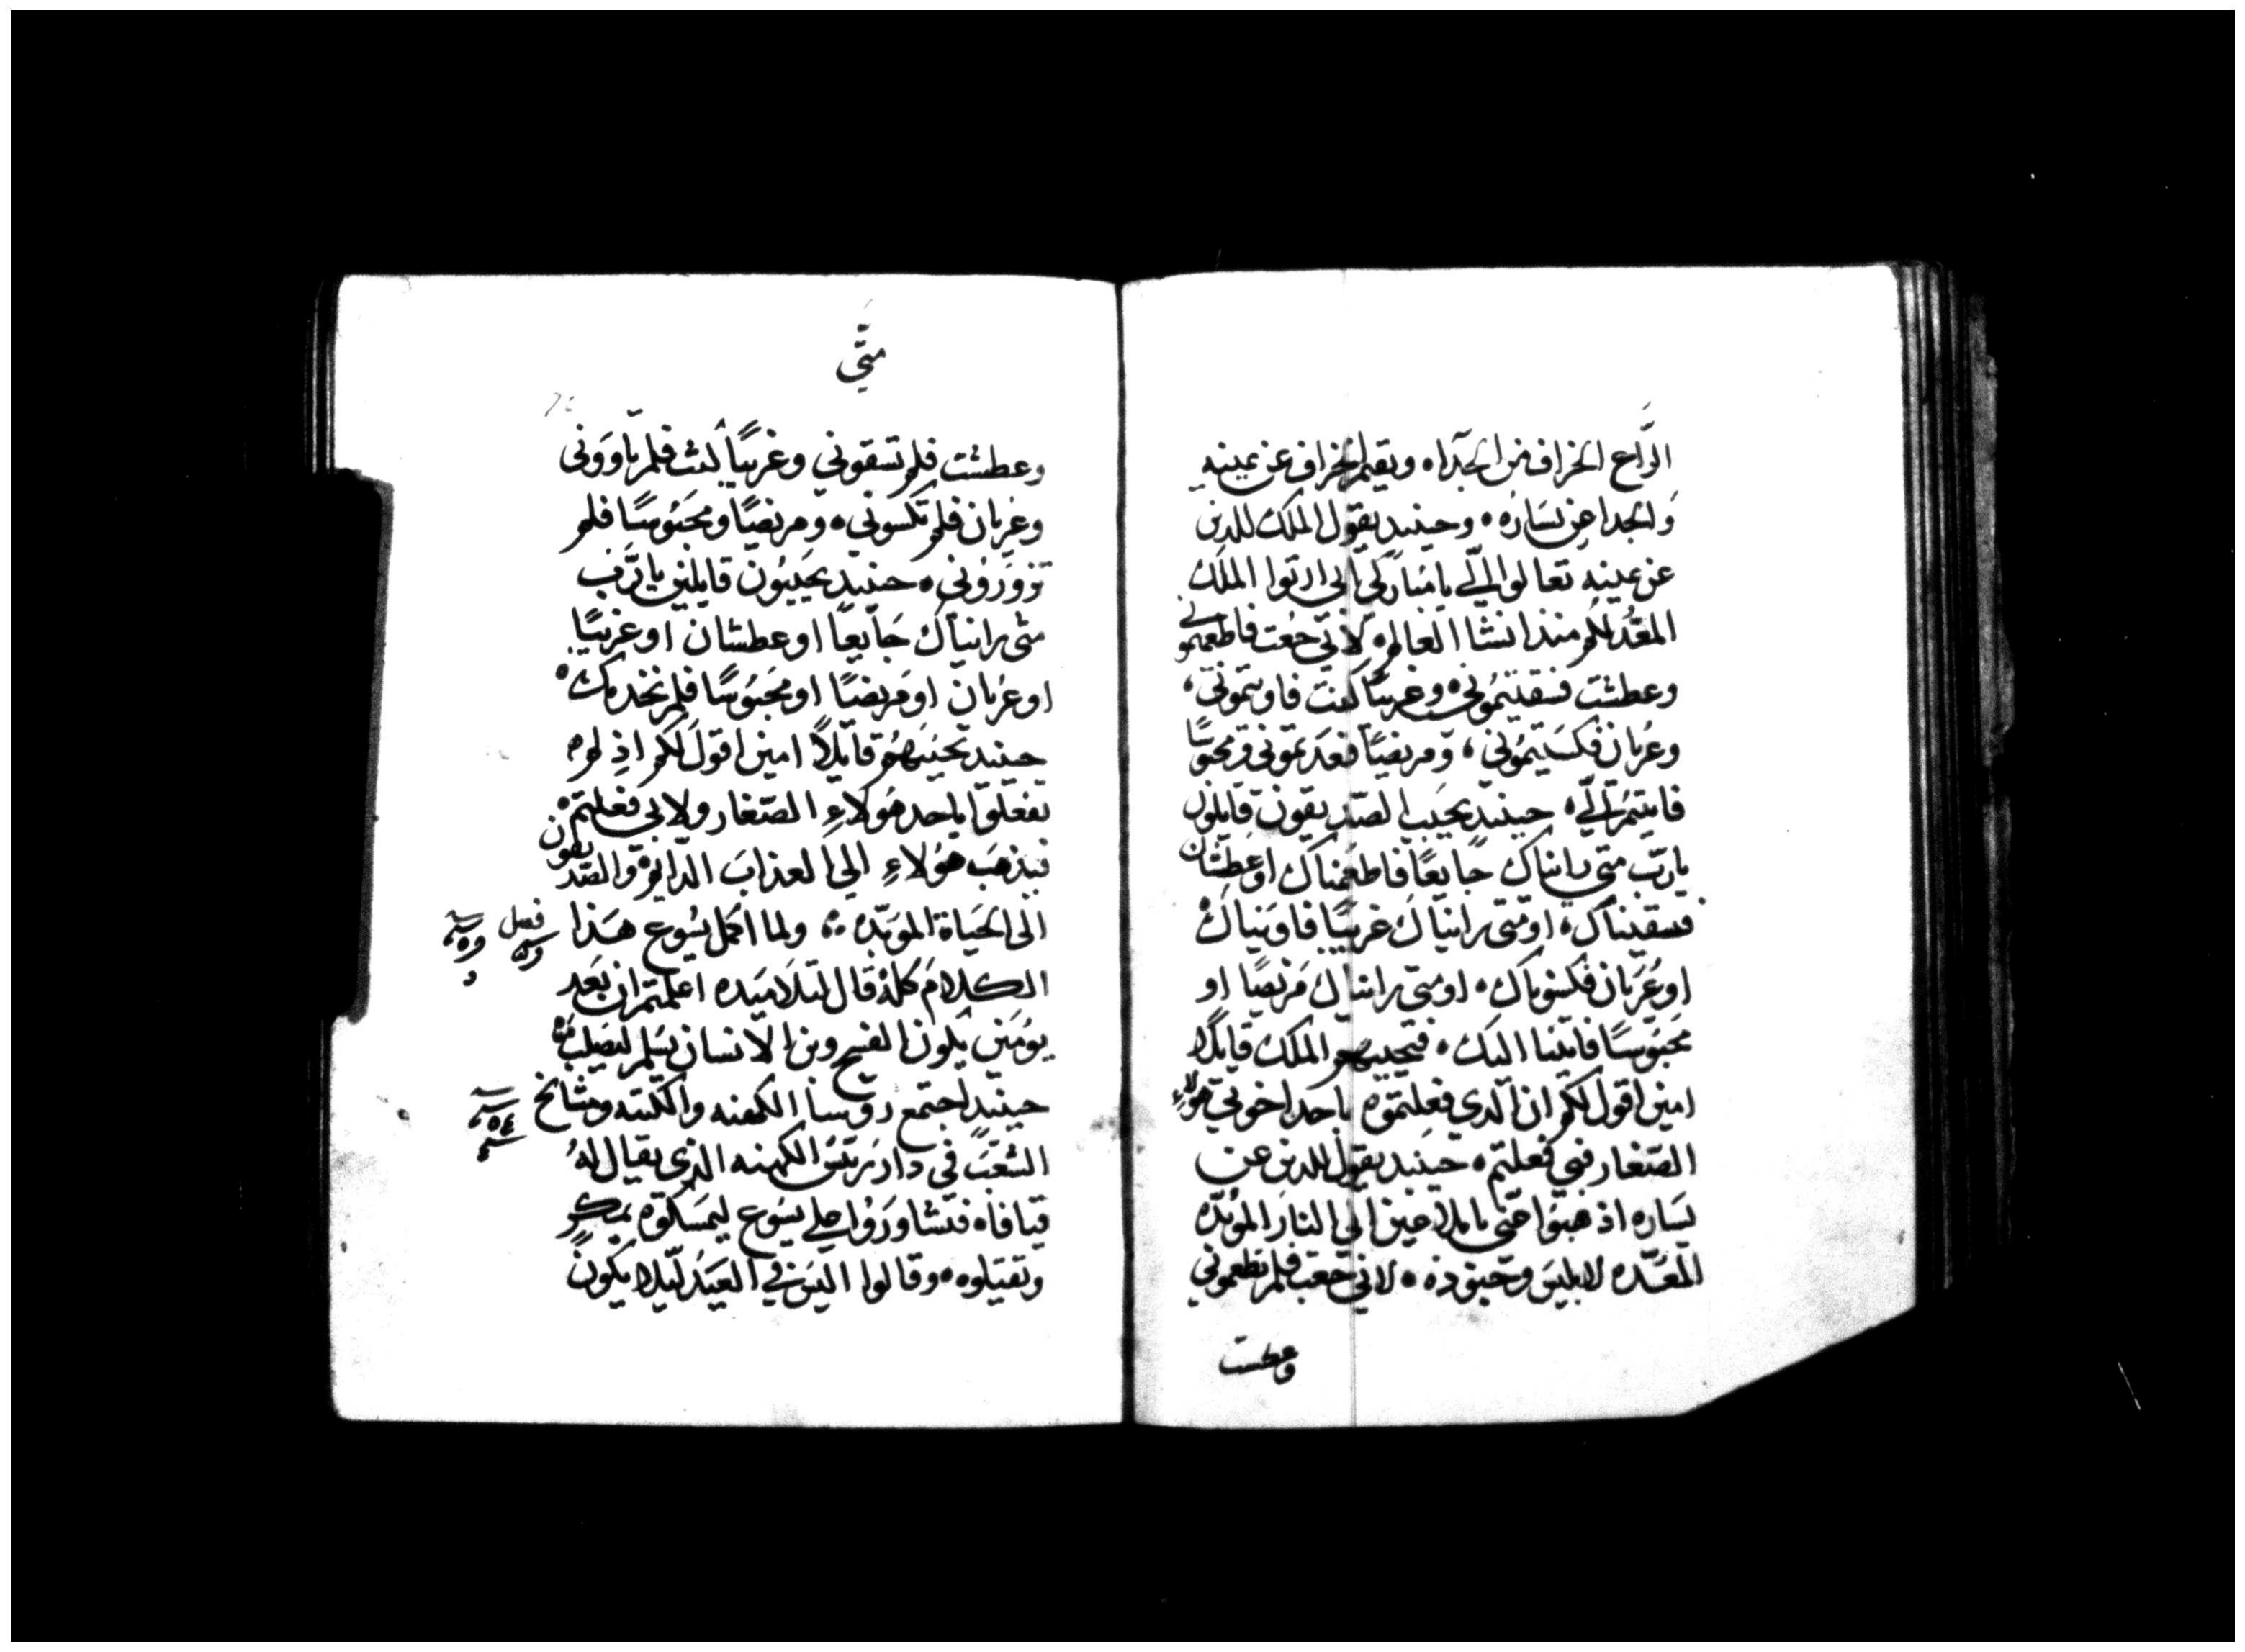 الراع الخراف من الجدآه ويقيم الخراف عن يمينه
والجدا عن يساره ٠ وحينيد يقول الملك للدين
عن يمينه تعالوا اليّ يا مباركي ابي ارتوا الملك
المعدّ لكم مند انشا العالم ٠ لاني جعت فاطعمتموني
وعطشت فسقيتموني ٠ وغريبًا كنت فاويتموني ،
وعُريان فكسيتموني ، ومريضًا فعدتموني ومحبوسًا
فاتيتم اليّ ٠ حينيد يجيب الصّديقون قايلون
يا ربّ متي رايناك جايعًا فاطعمناك او عطشان
فسقيناك ، او متى رايناك غريبًا فاويناك
او عُريان فكسوناك ٠ او متى رايناك مريضًا او
محبوسًا فاتينا اليك ٠ فيجيبهم الملك قايلًا
امين اقول لكم ان الدي فعلتموه باحد اخوتي هولاءِ
الصّغار فبي فعلتم ٠ حينيد يقول للدين عن
يساره اذهبوا عني يا ملاعين الي النار الموبّده
المعدّه لابليس وجنوده ٠ لاني جعت فلم تطعموني
وعطست
متّي
وعطشت فلم تسقوني وغريبًا كنت فلم تاووني
وعُريان فلم تكسوني ٠ ومريضًا ومحبوسًا فلم
تزوروني ٠ حينيد يجيبون قايلين يا رّب
متى رايناك جايعًا او عطشان او غريبًا
او عُريان او مريضًا او محبوسًا فلم نخدمك ٠
حينيد يجيبهم قايلًا امين اقول لكم اذ لم
تفعلوا باحد هولاءِ الصّغار ولا بي فعلتم ٠
فيذهب هولاءِ الي العذاب الدايم والصّديقون
الى الحياة الموبّده ٠٠ ولما اكمل يسوع هذا
فصل
الكلام كله قال لتلاميده اعلمتم ان بعد
يومين يكون الفسح وبن الانسان يسلم ليصلب ٠
حينيد اجتمع روسا الكهنه والكتبه ومشايخ
٥٤
الشعب في دار ريئس الكهنه الذي يقال لهُ
قيافاه فتشاوروا علي يسوع ليمسكوه بمكرٍ
ويقتلوه ٠ وقالوا اليس في العيد ليلا يكون